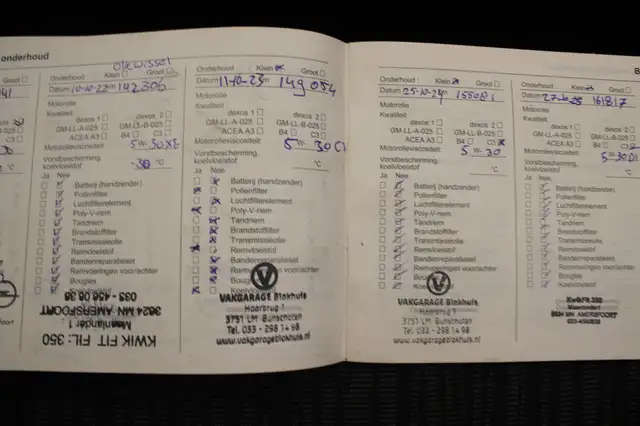 onderhoud
Groot
oliewissel
Onderhoud Klein Groot
Datum 10-10-22 m 142306
Motorolie
Kwaliteit
dexos 1 dexos 2
GM-LL-A-025 GM-LL-B-025
ACEA A3 B4 C3
Motorolieviscositeit 5 W-30
Vorstbescherming koelvloeistof -38 °C
Ja Nee
Batterij (handzender)
Pollenfilter
Luchtfilterelement
Poly-V-riem
Tandriem
Brandstoffilter
Transmissieolie
Remvloeistof
Bandenreparatieset
Remvoeringen voor/achter
Bougies
Koelvloeistof
KWIK FIT FIL: 350
3824 MN AMERSFOORT
033 - 456 08 38
Onderhoud Klein Groot
Datum 11-10-23 m 149054
Motorolie
Kwaliteit
dexos 1 dexos 2
GM-LL-A-025 GM-LL-B-025
ACEA A3 B4 C3
Motorolieviscositeit 5 W-30 C3
Vorstbescherming koelvloeistof °C
Ja Nee
Batterij (handzender)
Pollenfilter
Luchtfilterelement
Poly-V-riem
Tandriem
Brandstoffilter
Transmissieolie
Remvloeistof
Bandenreparatieset
Remvoeringen voor/achter
VAKGARAGE Blokhuis
Haarbrug 1
3751 LM Bunschoten
Tel. 033 - 298 14 98
www.vakgarageblokhuis.nl
Onderhoud : Klein Groot
Datum 25-10-24
Motorolie
Kwaliteit
dexos 1 dexos 2
GM-LL-A-025 GM-LL-B-025
ACEA A3 B4 C3
Motorolieviscositeit 5 W-30
Vorstbescherming koelvloeistof °C
Ja Nee
Batterij (handzender)
Pollenfilter
Luchtfilterelement
Poly-V-riem
Tandriem
Brandstoffilter
Transmissieolie
Remvloeistof
Bandenreparatieset
Remvoeringen voor/achter
Bougies
VAKGARAGE Blokhuis
Haarbrug 1
3751 LM Bunschoten
Tel. 033 - 298 14 98
www.vakgarageblokhuis.nl
Onderhoud : Klein Groot
Datum 161817
Motorolie
Kwaliteit
dexos 1 dexos 2
GM-LL-A-025 GM-LL-B-025
ACEA A3 B4 C3
Motorolieviscositeit 5 W-30
Vorstbescherming koelvloeistof °C
Ja Nee
Batterij (handzender)
Pollenfilter
Luchtfilterelement
Poly-V-riem
Tandriem
Brandstoffilter
Transmissieolie
Remvloeistof
Bandenreparatieset
Remvoeringen voor/achter
Bougies
Koelvloeistof
3824 MN AMERSFOORT